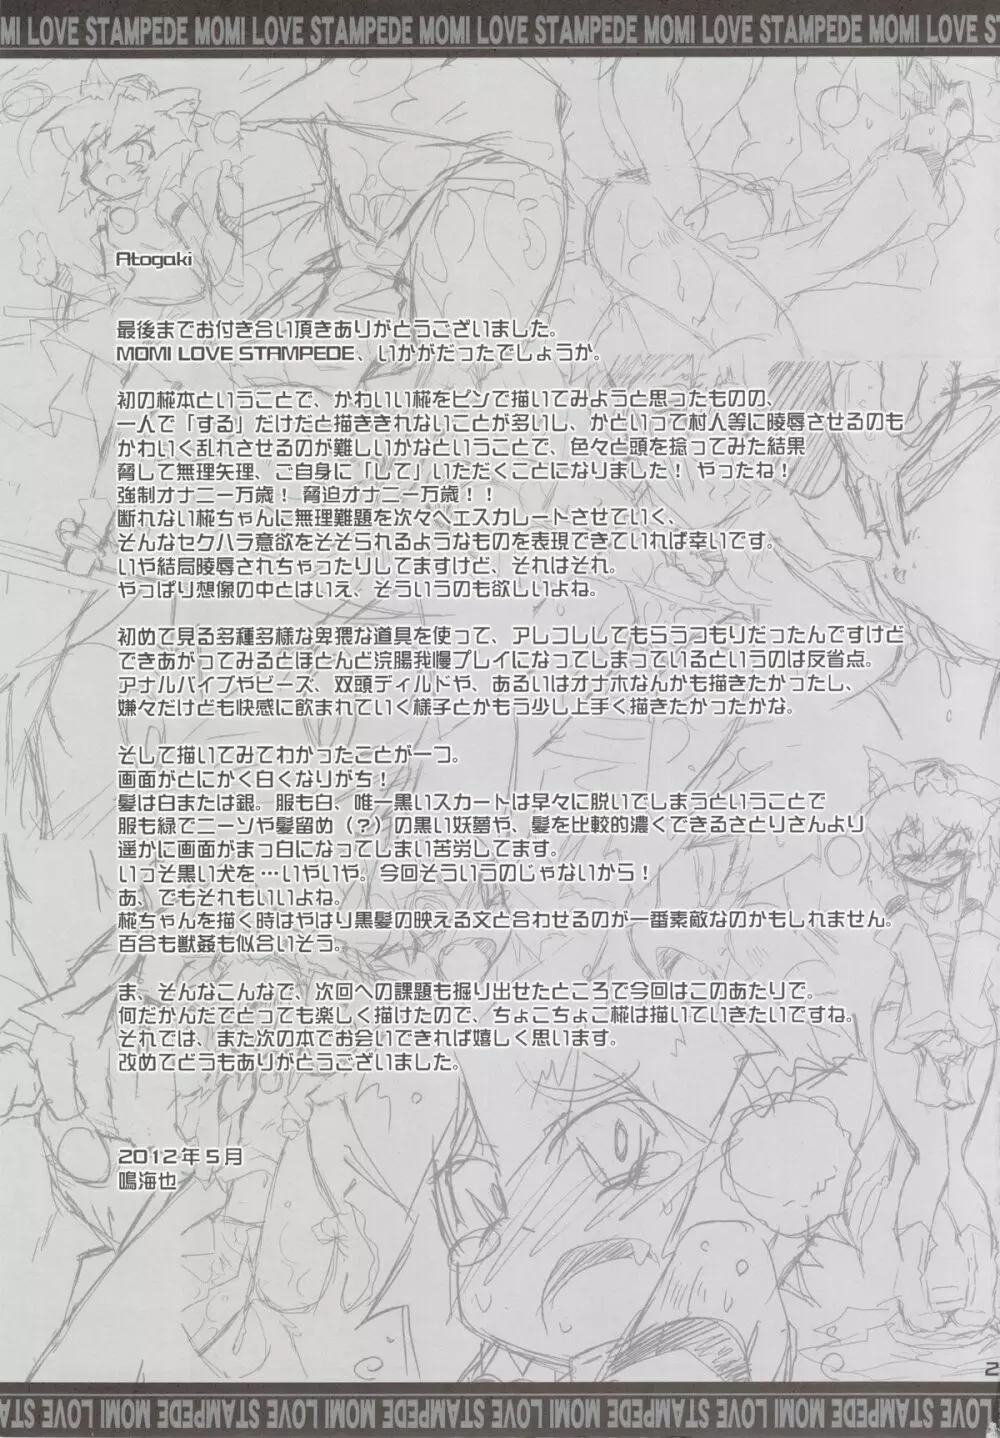 MI LOVE STAMPEDE MOMI LOVE STAMPEDE MOMI LOVE STAMPEDE MOMI LOVE S
Atogaki
最後までお付き合い頂きありがとうございました。
MOMI LOVE STAMPEDE、いかがだったでしょうか。
初の椛本ということで、かわいい椛をピンで描いてみようと思ったものの、
一人で「する」だけだと描ききれないことが多いし、かといって村人等に陵辱させるのも
かわいく乱れさせるのが難しいかなということで、色々と頭を捻ってみた結果
脅して無理矢理、ご自身に「して」いただくことになりました！ やったね！
強制オナニー万歳！ 脅迫オナニー万歳！！
断れない椛ちゃんに無理難題を次々へエスカレートさせていく、
そんなセクハラ意欲をそそられるようなものを表現できていれば幸いです。
いや結局陵辱されちゃったりしてますけど、それはそれ。
やっぱり想像の中とはいえ、そういうのも欲しいよね。
初めて見る多種多様な卑猥な道具を使って、アレコレしてもらうつもりだったんですけど
できあがってみるとほとんど浣腸我慢プレイになってしまっているというのは反省点。
アナルバイブやビーズ、双頭ディルドや、あるいはオナホなんかも描きたかったし、
嫌々だけども快感に飲まれていく様子とかもう少し上手く描きたかったかな。
そして描いてみてわかったことが一つ。
画面がとにかく白くなりがち！
髪は白または銀。服も白、唯一黒いスカートは早々に脱いでしまうということで
服も緑でニーソや髪留め（？）の黒い妖夢や、髪を比較的濃くできるさとりさんより
遥かに画面がまっ白になってしまい苦労してます。
いっそ黒い犬を…いやいや。今回そういうのじゃないから！
あ、でもそれもいいよね。
椛ちゃんを描く時はやはり黒髪の映える文と合わせるのが一番素敵なのかもしれません。
百合も獣姦も似合いそう。
ま、そんなこんなで、次回への課題も掘り出せたところで今回はこのあたりで。
何だかんだでとっても楽しく描けたので、ちょこちょこ椛は描いていきたいですね。
それでは、また次の本でお会いできれば嬉しく思います。
改めてどうもありがとうございました。
2012年5月
鳴海也
2
MI LOVE STAMPEDE MOMI LOVE STAMPEDE MOMI LOVE STAMPEDE MOMI LOVE STA